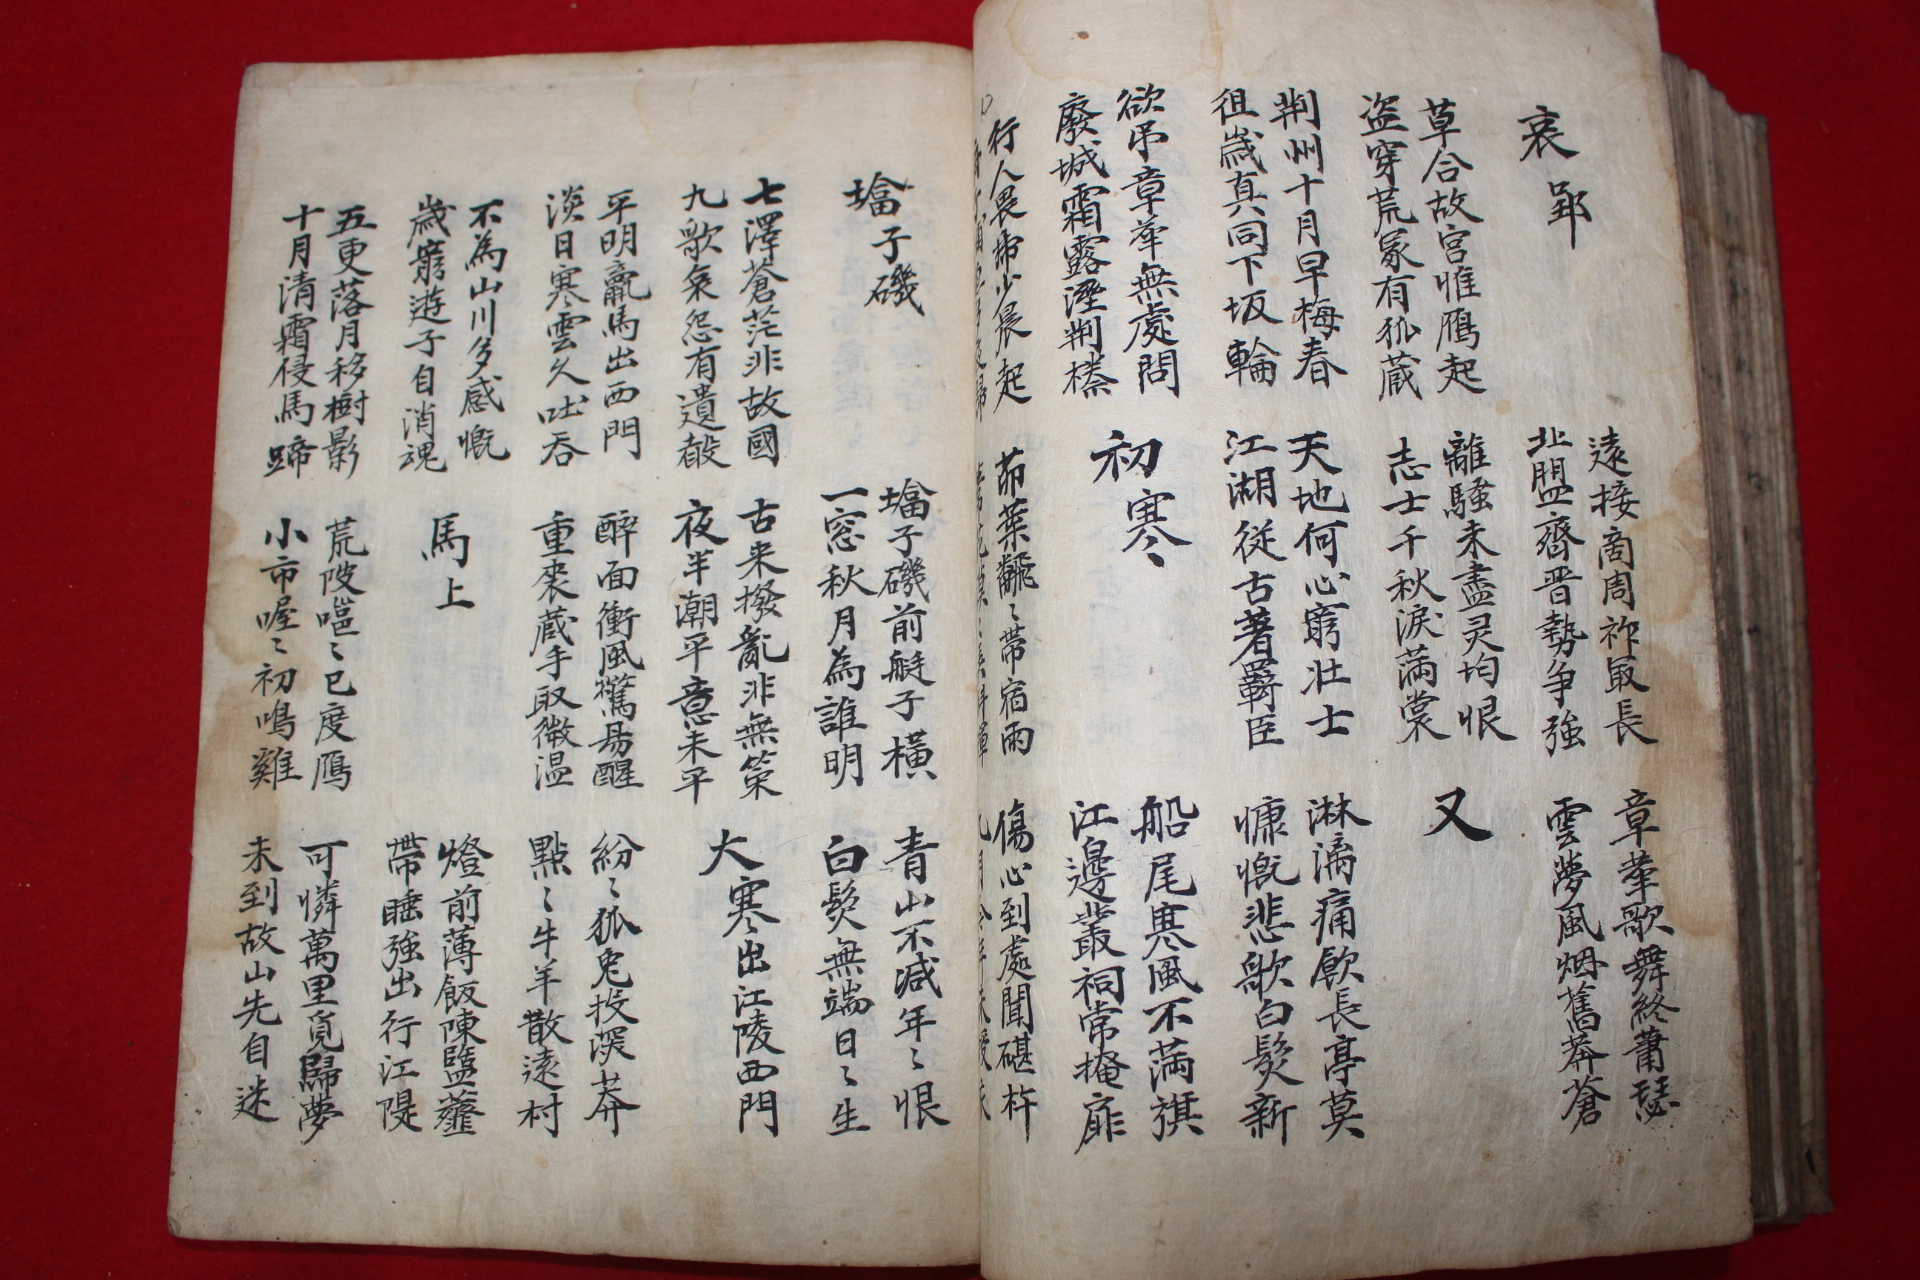 哀郢
遠接商周祚最長
北盟齊晋勢争強
章華歌舞終蕭瑟
雲夢風烟舊莽蒼
草合故宮惟鴈起
盗穿荒冢有狐蔵
離騷未盡灵均恨
志士千秋淚滿裳
又
荆州十月早梅春
徂歲真同下坂輪
天地何心窮壮士
江湖従古著羇臣
淋漓痛飮長亭莫
慷慨悲歌白髮新
欲吊章華無處問
廢城霜露溼荆榛
初寒
船尾寒風不滿旗
江邊叢祠常掩扉
行人畏虎少晨起
茆葉翻〻帶宿雨
傷心到處聞碪杵
塔子磯
塔子磯前艇子橫
一窓秋月為誰明
青山不減年〻恨
白髮無端日〻生
七澤蒼茫非故國
九歌哀怨有遺聲
古来撥亂非無策
夜半潮平意未平
大寒出江陵西門
平明羸馬出西門
淡日寒雲久吐吞
醉面衝風驚易醒
重裘蔵手取微温
紛〻狐兔投深莽
點〻牛羊散遠村
不為山川多感慨
歲窮遊子自消魂
馬上
燈前薄飯陳鹽虀
帶睡強出行江隄
五更落月移樹影
十月清霜侵馬蹄
荒陂嗈〻已度鴈
小市喔〻初鳴雞
可憐萬里覓歸夢
未到故山先自迷